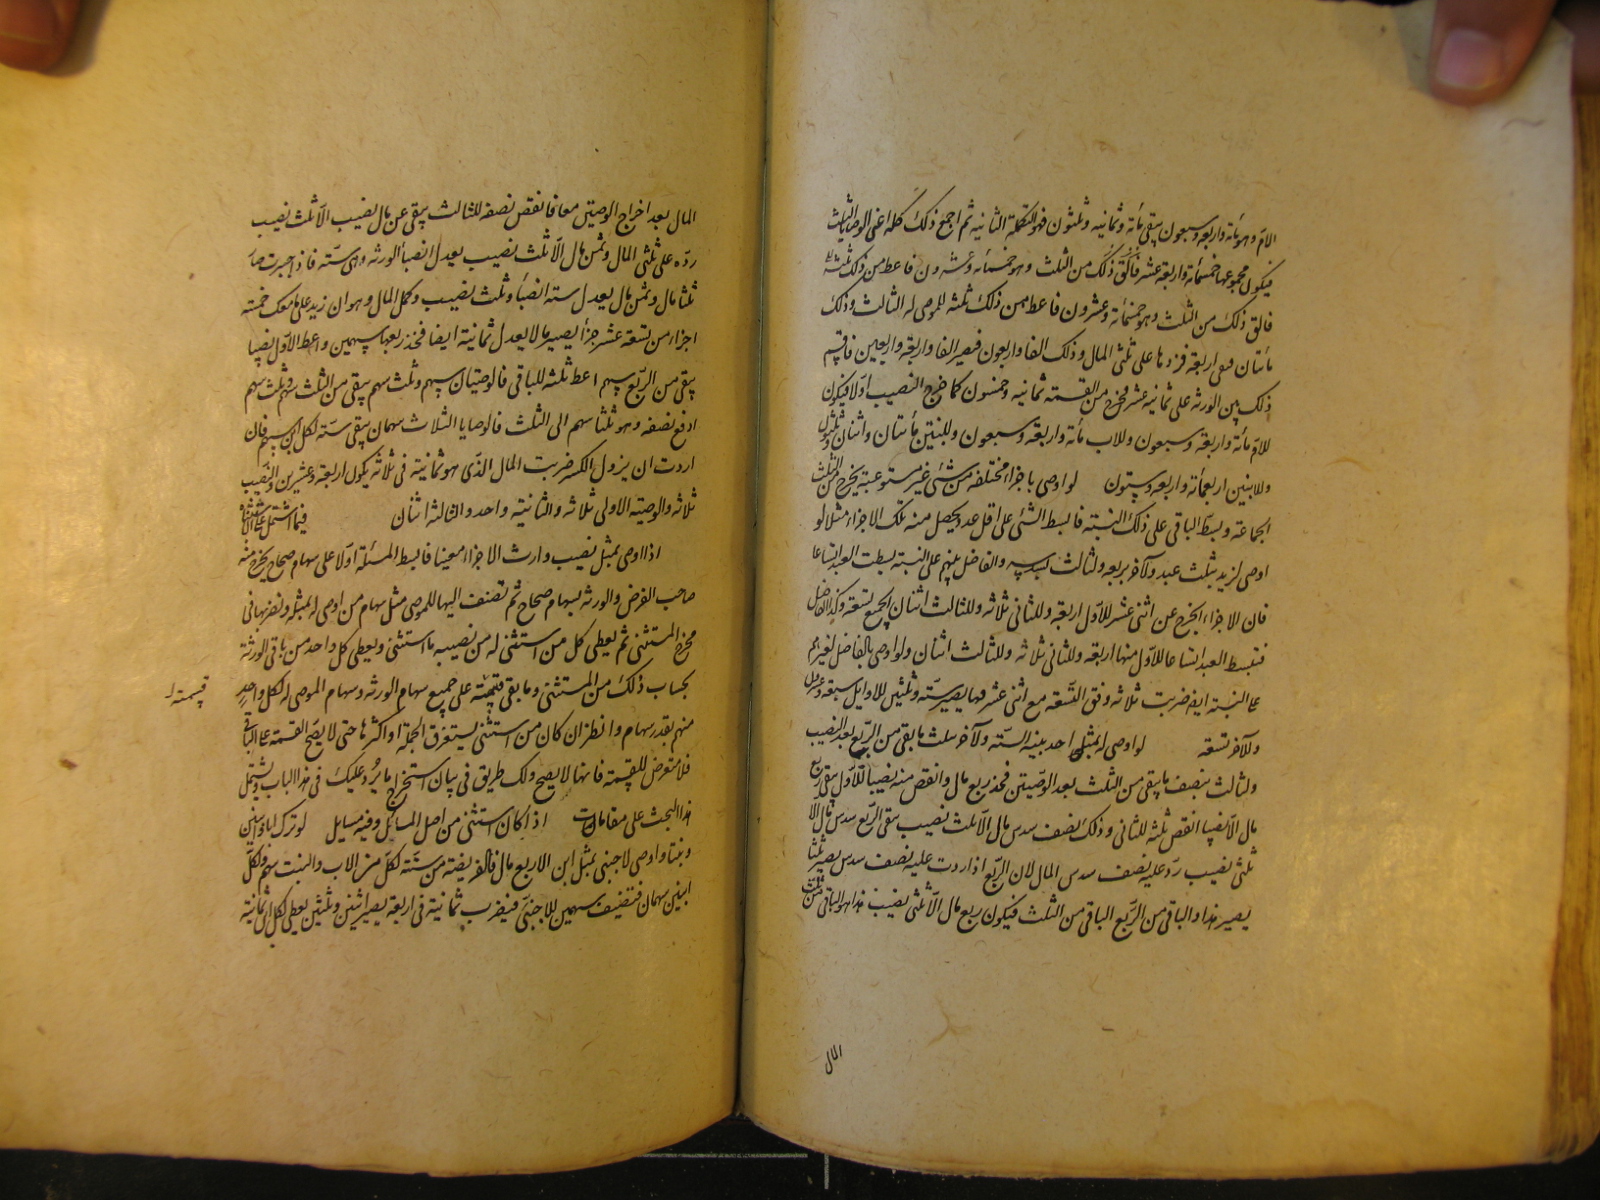 الام وهو مأة واربعة وسبعون يبقى مأة وثمانيه وثلثون فهو التكملة الثانيه ثم اجمع ذلك كله اعنى الوصايا الثلث
فيكون مجموعها خمسمأة واربعة عشر فالق ذلك من الثلث وهو خمسمأه وعشرون فاعط من ذلك ثلثه
فالق ذلك من الثلث وهو خمسمأة وعشرون فاعط من ذلك ثلثه للموصى له الثالث وذلك
مأتان فهى اربعة فزدها على ثلثى المال وذلك الفا واربعون فيصير الفا واربعة واربعين فاقسم
ذلك بين الورثه على ثمانية عشر فخرج من القسمة ثمانيه وخمسون كما خرج النصيب اولا فيكون
للام مأة واربعة وسبعون وللاب مأة واربعة وسبعون وللبنتين مأتان واثنان وثلثون
وللابنين اربعمأة واربعة وستون لو اوصى باجزاء مختلفه من شئ غير مستوعبة يخرج من الثلث
الجماعة وبسط الباقى على ذلك النسبة فابسط الشئ على اقل عدد يحصل منه تلك الاجزاء مثلا لو
اوصى لزيد بثلث عبد ولآخر بربعه ولثالث بسدسه والفاضل بينهم على النسبة بسطت العبد اتساعا
فان الاجزاء الخرج عن اثنى عشر للاول اربعة وللثانى ثلاثه وللثالث اثنان الجميع تسعة وكذا الفاضل
فتبسط العبد اتساعا للاول منها اربعة وللثانى ثلاثه وللثالث اثنان ولو اوصى بالفاضل لغيرهم
على النسبة ايضا ضربت ثلاثه وفق التسعة مع اثنى عشر فيها يصير ستة وثلثين للاوايل سبعة وعشرون
وللآخر تسعة لو اوصى له بمثل احد بنيه الستة ولآخر بثلث ما بقى من الربع بعد النصيب
ولثالث بنصف ما يبقى من الثلث بعد الوصيتين فخذ ربع مال وانقص منه نصيبا للاول يبقى ربع
مال الا نصيبا انقص ثلثه للثانى وذلك نصف سدس مال الا ثلث نصيب يبقى الربع سدس مال الا
ثلثى نصيب رد عليه نصف سدس المال لان الربع اذا زدت عليه نصف سدس يصير ثلثا
يصير هذا والباقى من الربع الباقى من الثلث فيكون ربع مال الا ثلثى نصيب هذا هو الباقى من ثلث
المال
المال بعد اخراج الوصيتين معا فانقص نصفه للثالث يبقى ثمن مال نصيب الا ثلث نصيب
رده على ثلثى المال وثمن مال الا ثلث نصيب يعدل انصبأ الورثه وهى سته فاذا جبرت صار
ثلثا مال وثمن مال يعدل سته انصبأ وثلث نصيب وكمل المال وهو ان زيد على ما معك خمسة
اجزاء من تسعة عشر جزأ يصير مالا يعدل ثمانية ايضا فخذ ربعها سهمين واعط الاول نصيبا
يبقى من الربع سهم اعط ثلثه للباقى فالوصيتان سهم وثلث سهم يبقى من الثلث سهم وثلث سهم
ادفع نصفه وهو ثلثا سهم الى الثلث فالوصايا الثلاث سهمان يبقى ستة لكل ابن سهم فان
اردت ان يزول الكسر ضربت المال الذى هو ثمانية فى ثلاثه يكون اربعة وعشرين والنصيب
ثلاثه والوصية الاولى ثلاثه والثانيه واحد والثالثة اثنان فيما اشتمل على الاستثنا
اذا اوصى بمثل نصيب وارث الا جزاء معينا فابسط المسئلة اولا على سهام صحاح يخرج منه
صاحب الفرض والورثه بسهام صحاح ثم تضيف اليها للموصى مثل سهام من اوصى له بمثله وتضربها فى
مخرج المستثنى ثم يعطى كل من استثنى له من نصيبه ما استثنى ويعطى كل واحد من باقى الورثة
بحساب ذلك من المستثنى وما بقى قسمته على جميع سهام الورثه وسهام الموصى له لكل واحد
قسمته له
منهم بقدر سهامه وانظر ان كان من استثنى يستغرق الجملة او اكثرها حتى لا يصح القسمة على الباقى
فلا متعرض للقسمة فانها لا يصح ولك طريق فى بيان استخراج ما يرد عليك فى هذا الباب يشتمل
هذا البحث على مقامات اذا كان استثنى من اصل المسائل وفيه مسايل لو ترك ابا وابنين
وبنتا واوصى لاجنبى بمثل ابن الا ربع مال فالفريضة من ستة لكل من الاب والبنت سهم ولكل
ابنين سهمان فتضيف سهمين للاجنبى فيضرب ثمانية فى اربعة يصير اثنين وثلثين يعطى لكل ابن ثمانية